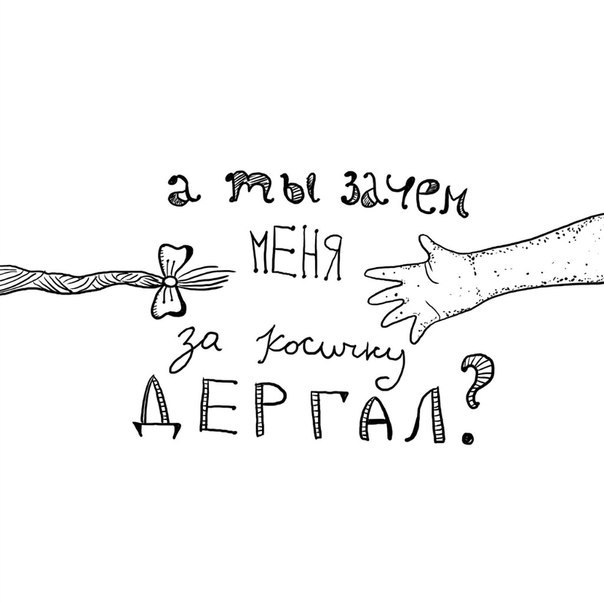 а ты зачем
МЕНЯ
за косичку
ДЕРГАЛ?